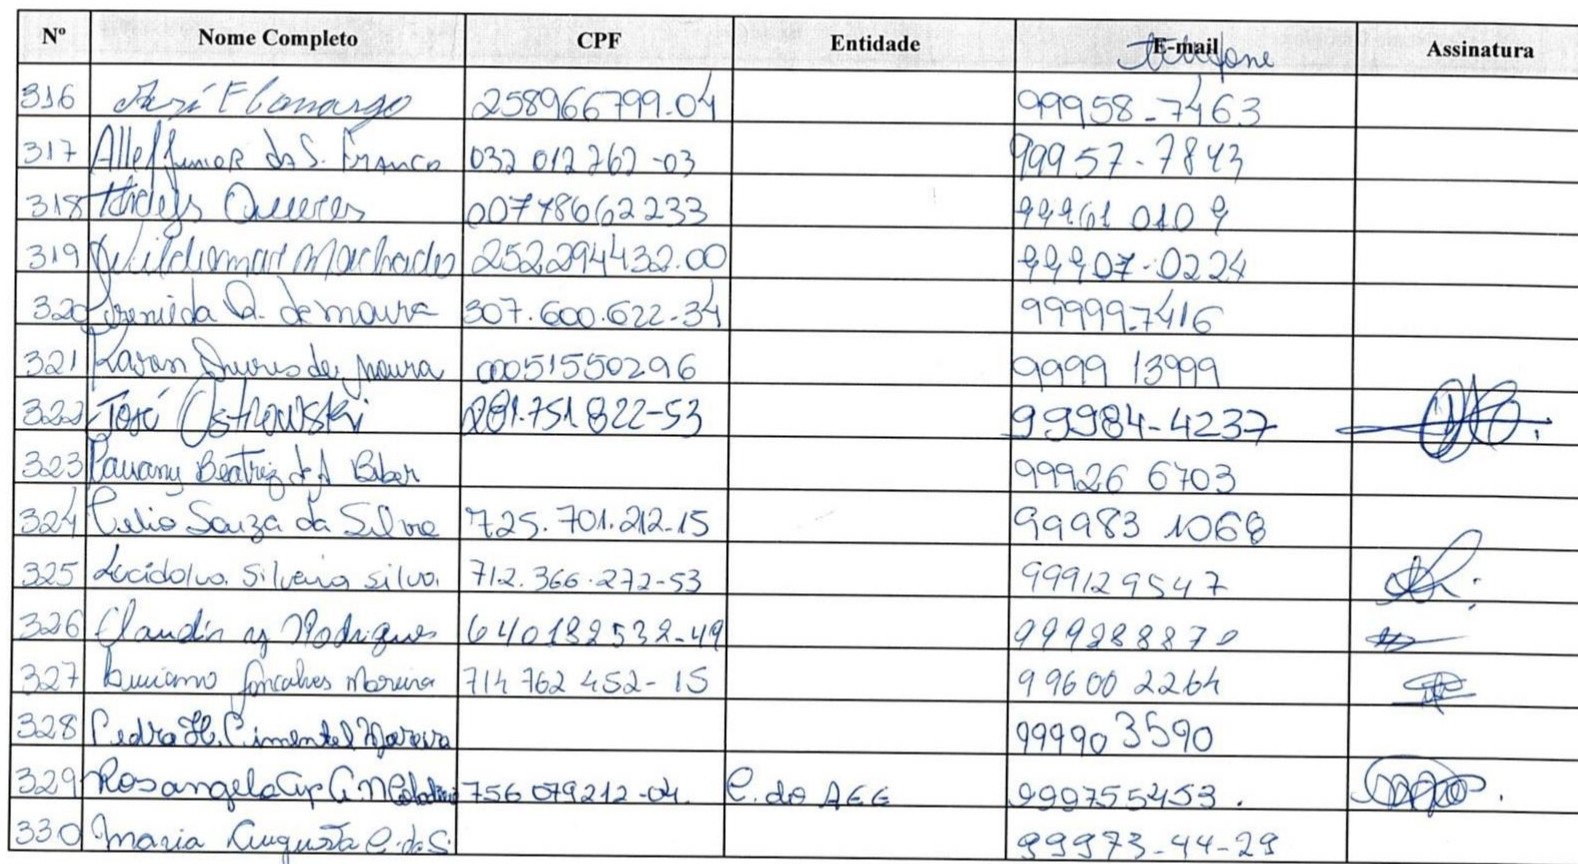 Nº Nome Completo CPF Entidade E-mail telefone Assinatura
316 258966799-04 99958-7463
317 Allef Junior da S. Franco 032 012 762-03 99957-7843
318 00778662233 99961 0109
319 Machado 252294432.00 99907-0224
320 Q. de moura 307.600.622-34 999997416
321 de Moura 00051550296 9999 13999
322 José Ostrowski 281.751 822-53 99984-4237
323 Beatriz de A 99926 6703
324 Celio Souza da Silva 725.701.212-15 99983 1068
325 Lucidalva Silveira Silva. 712.366.272-53 999129547
326 Rodrigues 640182532-49 999288870
327 Gonçalves Moreira 714 762 452-15 99600 2264
328 Pedro H. Pimentel Moreira 99990 3590
329 Rosangela 756 079212-04. C. do AEE 999755453.
330 Maria Augusta C. da S. 99973-44-29